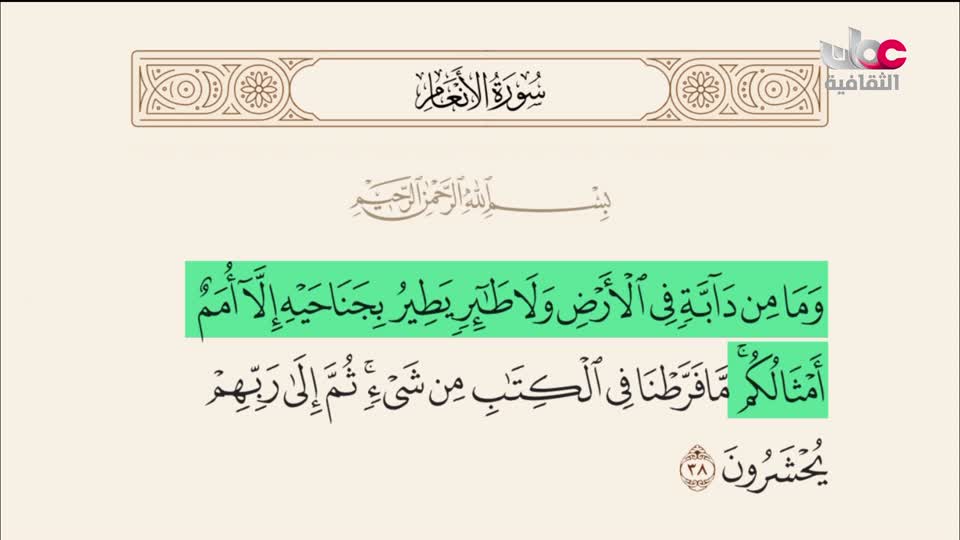 عمان
الثقافية
سُورَةُ الأَنْعَام
بِسْمِ اللَّهِ الرَّحْمَٰنِ الرَّحِيمِ
وَمَا مِن دَآبَّةٖ فِي ٱلۡأَرۡضِ وَلَا طَٰٓئِرٖ يَطِيرُ بِجَنَاحَيۡهِ إِلَّآ أُمَمٌ
أَمۡثَالُكُمۚ مَّا فَرَّطۡنَا فِي ٱلۡكِتَٰبِ مِن شَيۡءٖۚ ثُمَّ إِلَىٰ رَبِّهِمۡ
يُحۡشَرُونَ ٣٨